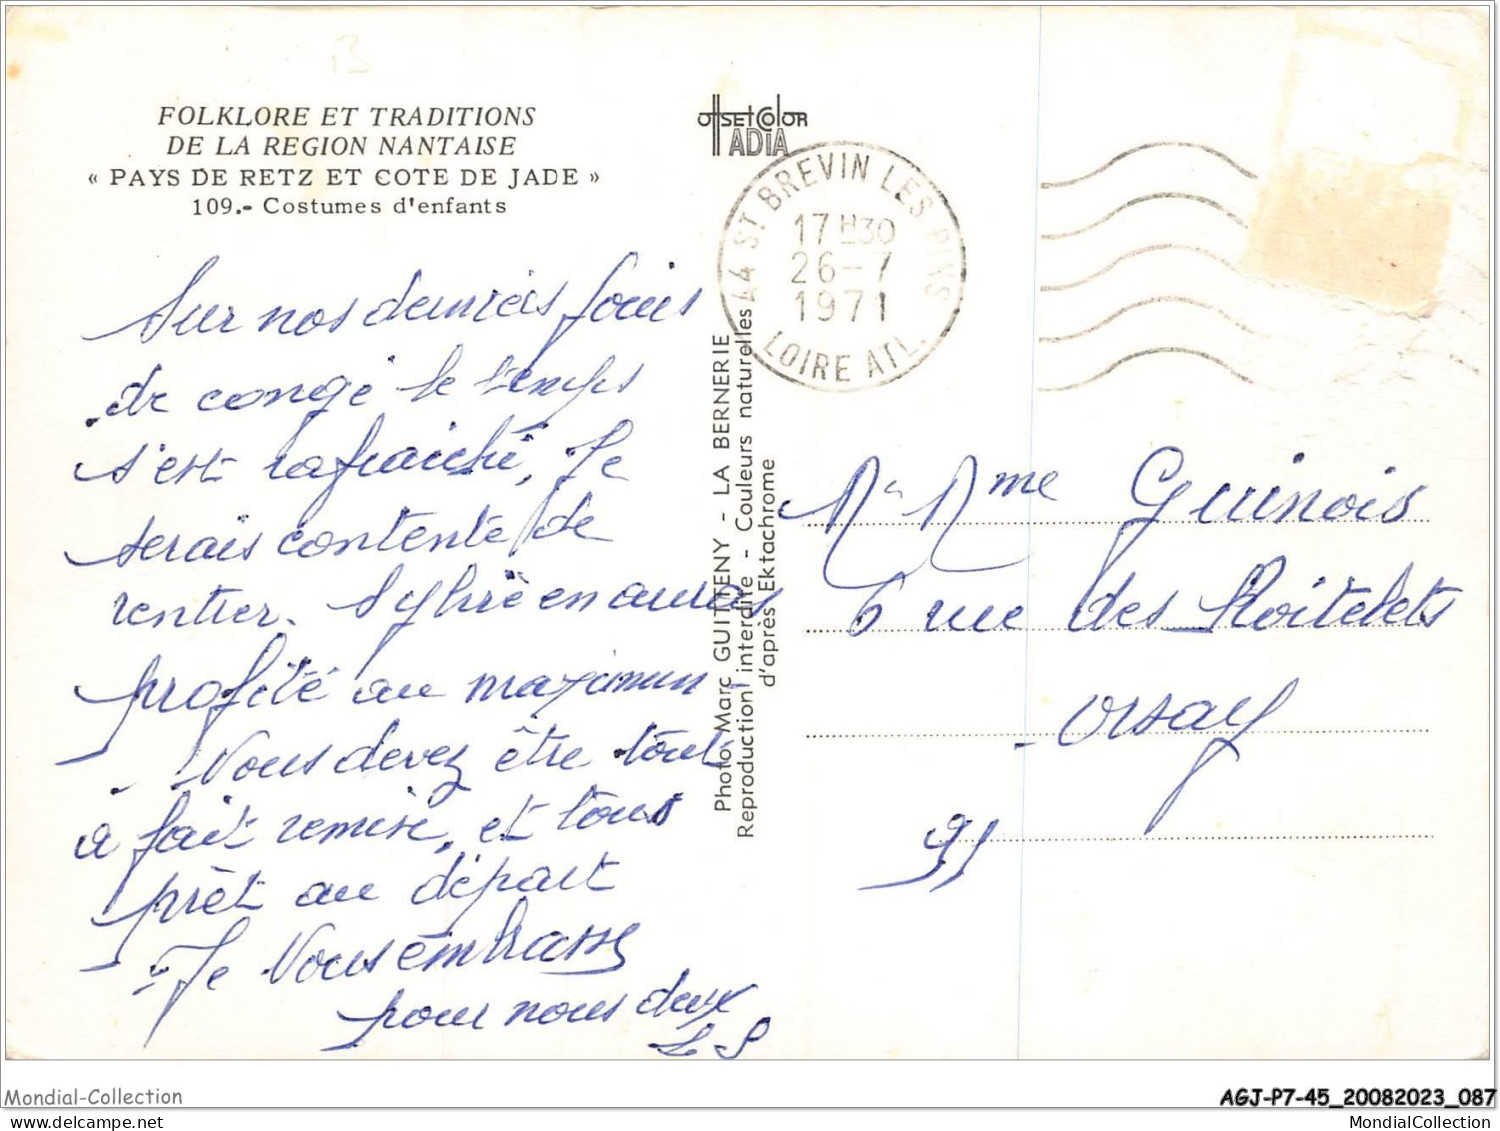 FOLKLORE ET TRADITIONS
DE LA REGION NANTAISE
« PAYS DE RETZ ET COTE DE JADE »
109.- Costumes d'enfants
Sur nos derniers jours
de congé le temps
s'est rafraichi, Je
serais contente de
rentrer. Sylvie en auras
profité au maximum
Vous devez être tout
à fait remise, et tous
prêt au départ
Je Vous embrasse
pour nous deux
OffsetColor
ADIA
44 ST BREVIN LES PINS
17H30
26-7
1971
LOIRE ATL.
Photo Marc GUITTENY - LA BERNERIE
Reproduction interdite - Couleurs naturelles
d'après Ektachrome
Mr Mme Guinois
6 rue des Roitelets
Orsay
91
Mondial-Collection
AGJ-P7-45_20082023_087
www.delcampe.net
MondialCollection